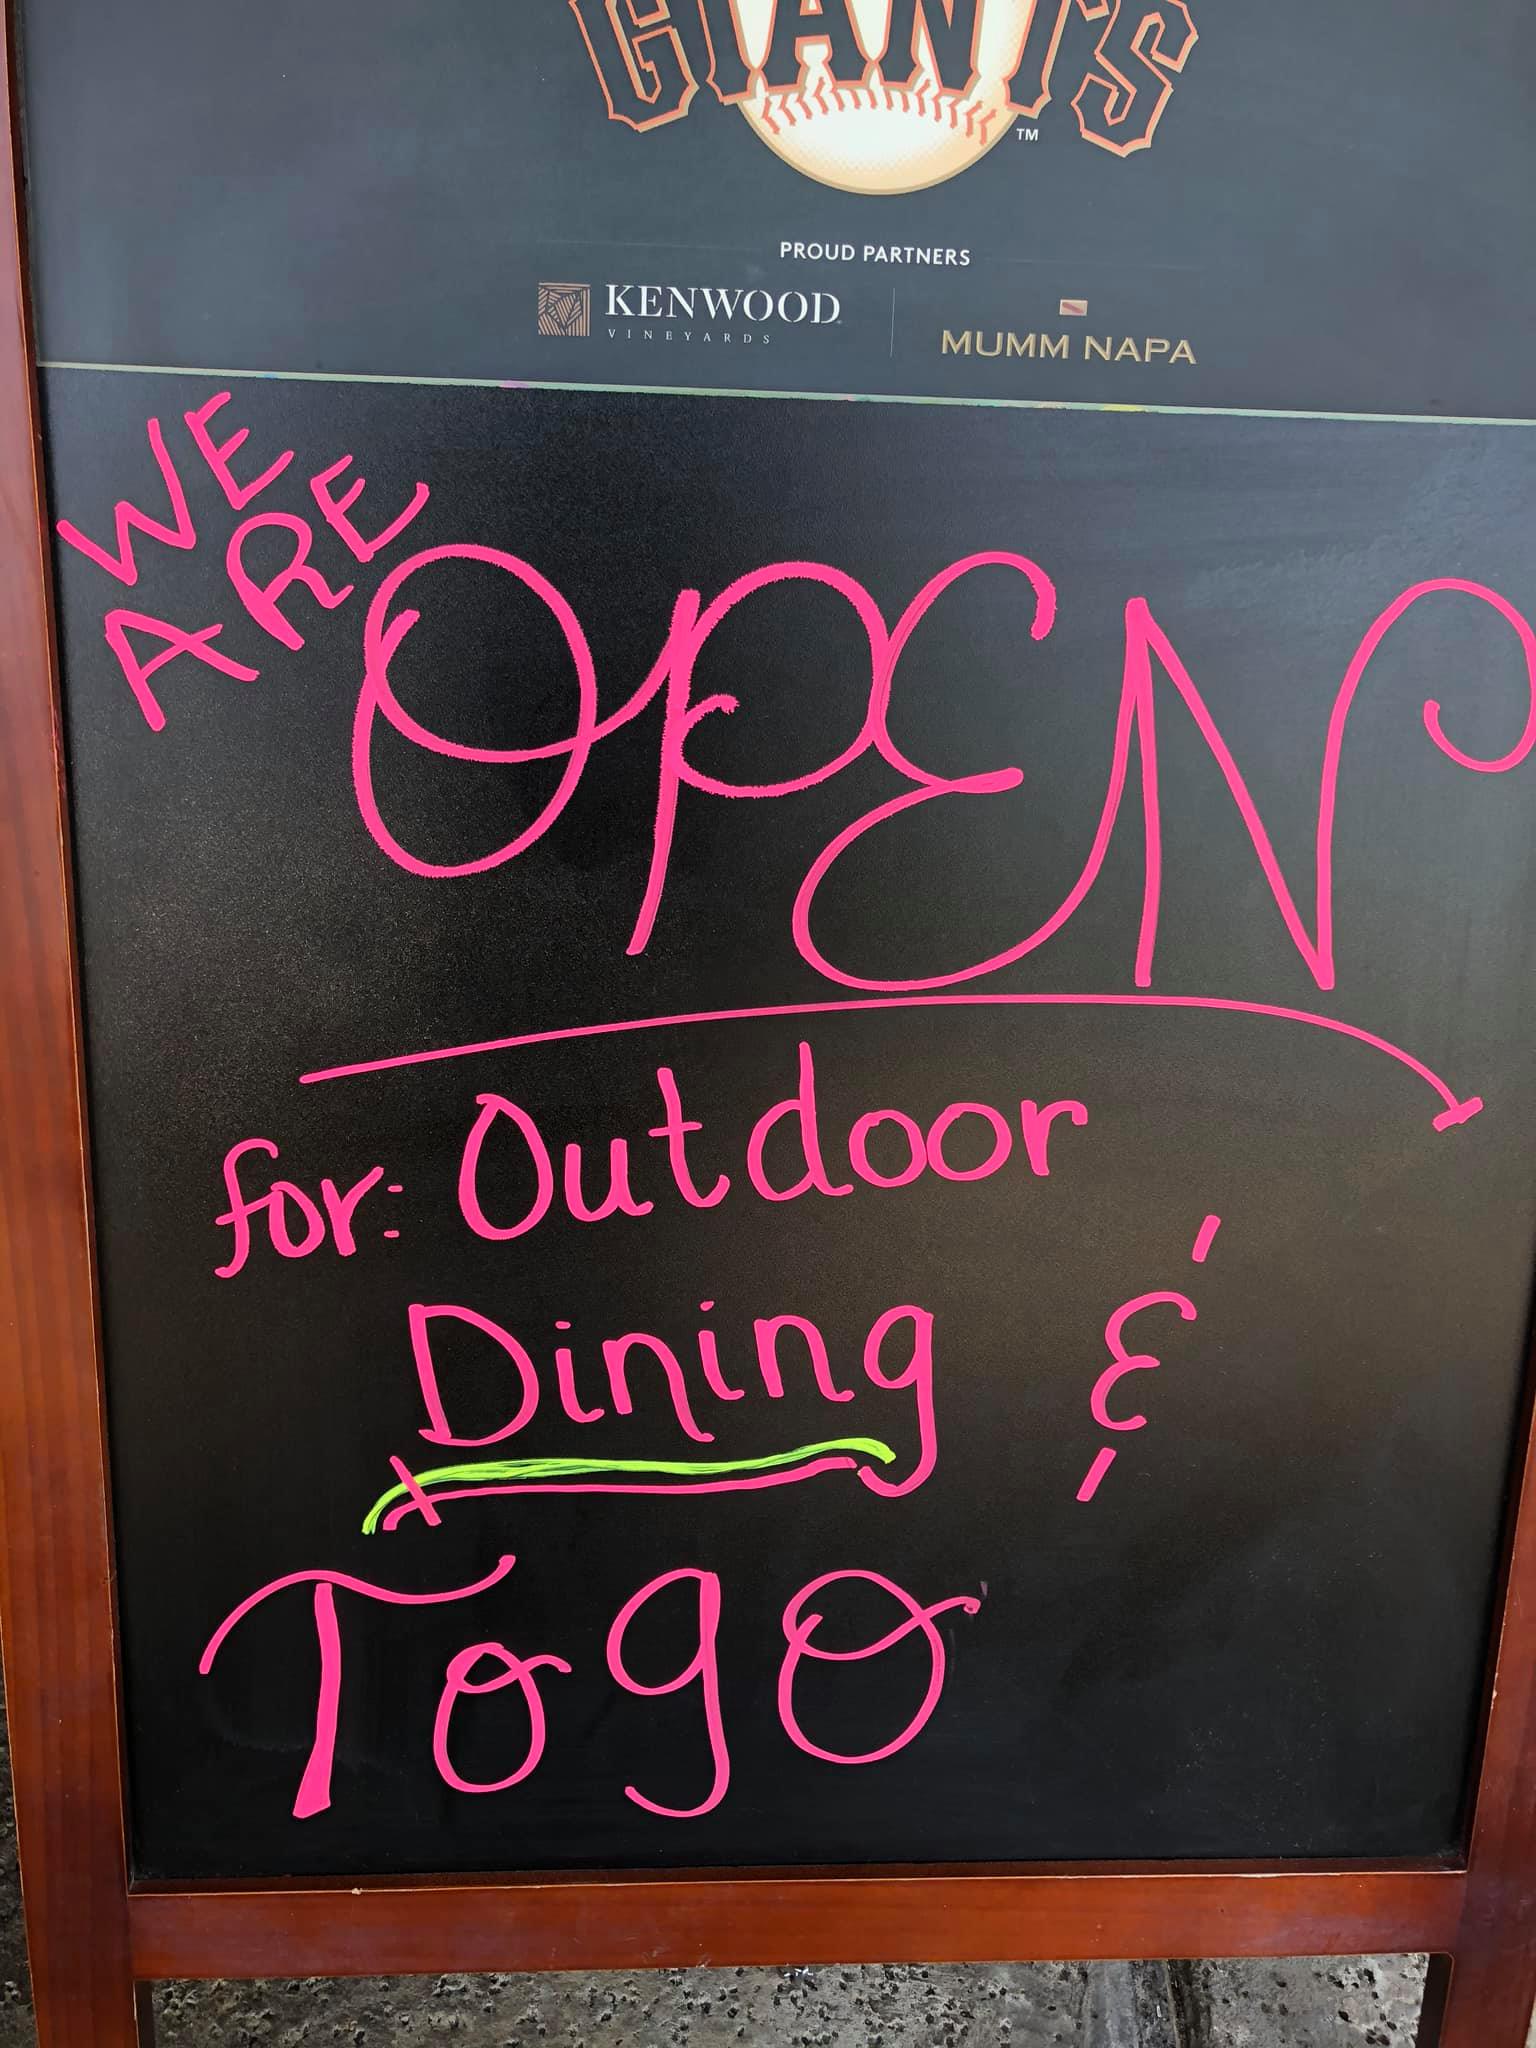 GIANTS
TM
PROUD PARTNERS
KENWOOD
VINEYARDS
MUMM NAPA
WE
ARE
OPEN
for: Outdoor
Dining &
To go